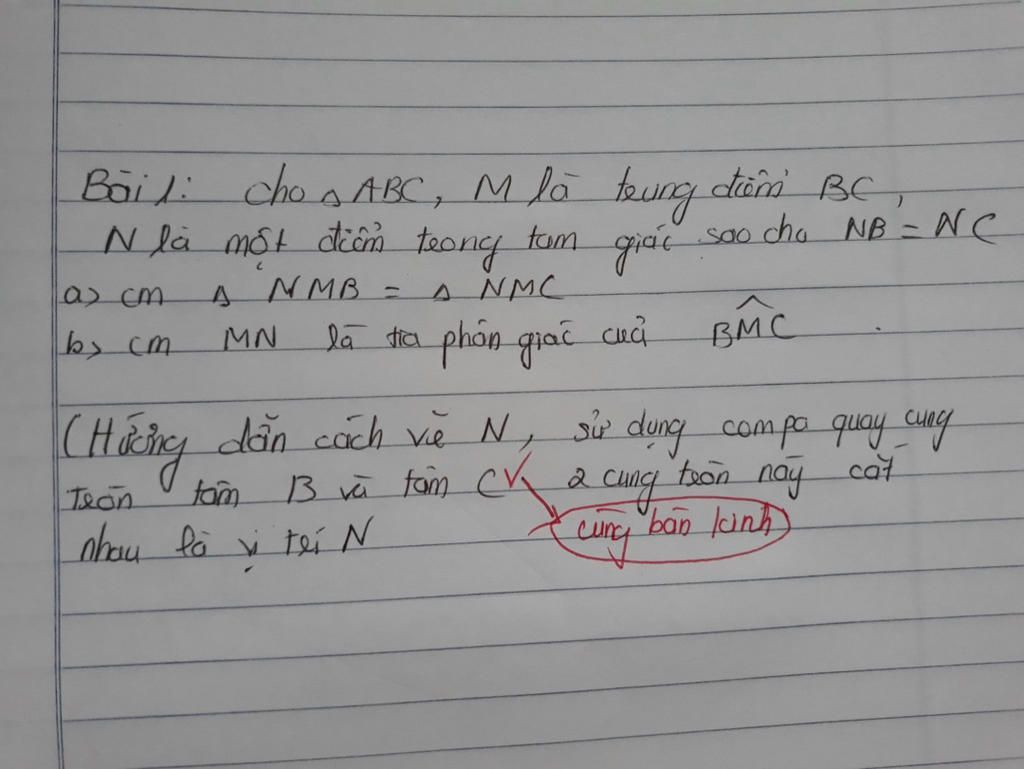 Bài 1: Cho △ABC, M là trung điểm BC,
N là một điểm trong tam giác sao cho NB = NC
a) cm △ NMB = △ NMC
b) cm MN là tia phân giác của BM̂C.
(Hướng dẫn cách vẽ N, sử dụng compa quay cung
tròn tâm B và tâm C 2 cung tròn này cắt
cùng bán kính
nhau là vị trí N